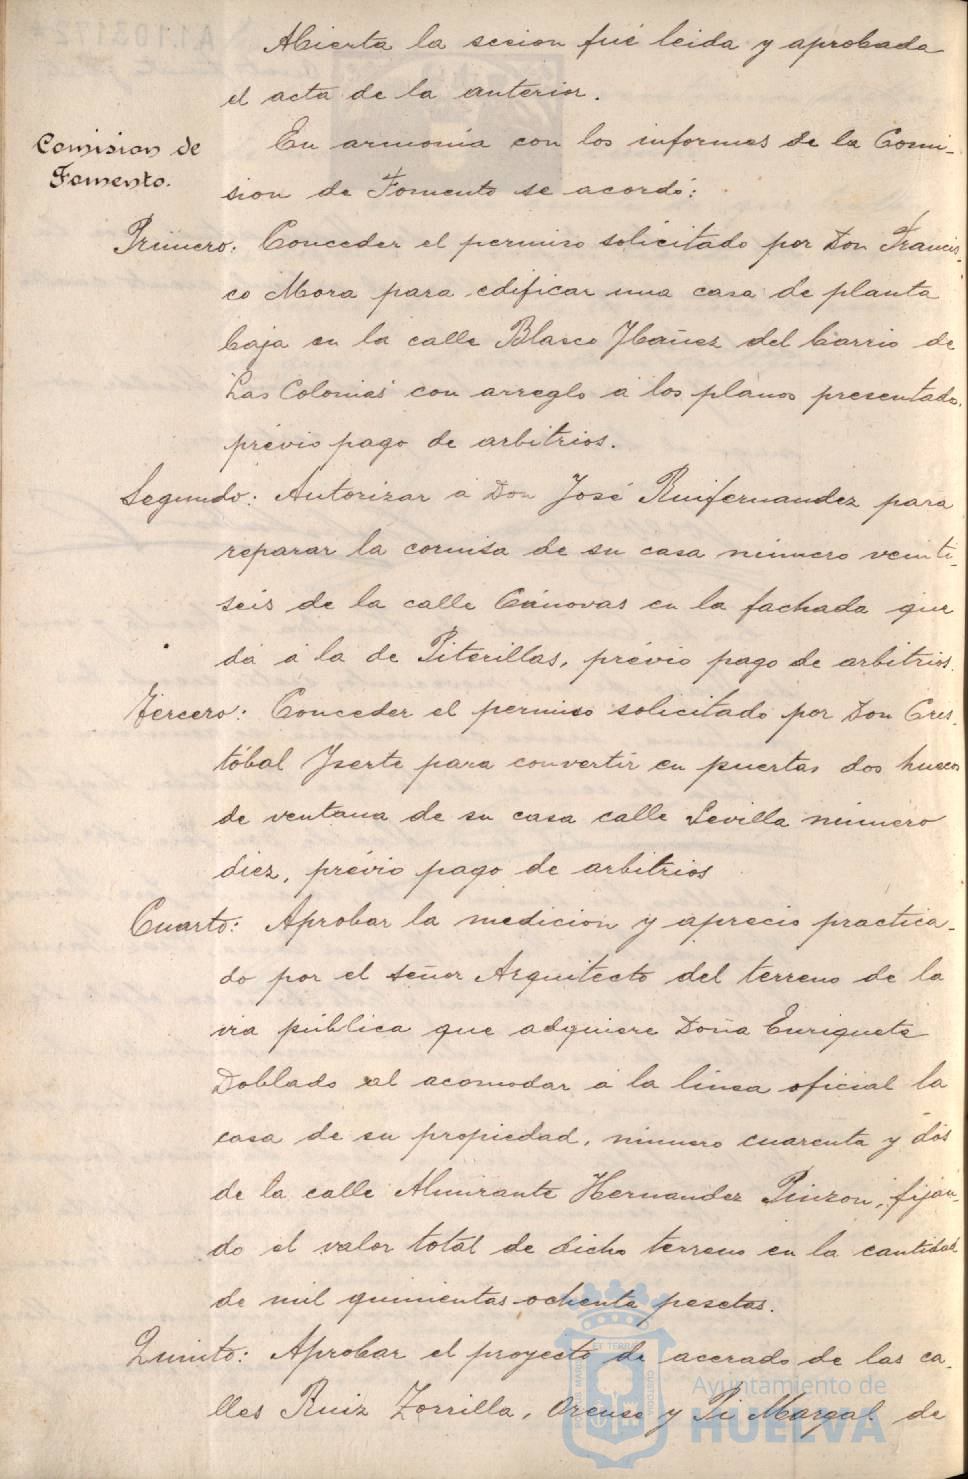 Abierta la sesion fué leida y aprobada
el acta de la anterior.
Comision de
Fomento.
En armonía con los informes de la Comi-
sion de Fomento se acordó:
Primero: Conceder el permiso solicitado por Don Francis-
co Mora para edificar una casa de planta
baja en la calle Blasco Ybañez del barrio de
"Las Colonias" con arreglo á los planos presentados
prévio pago de arbitrios.
Segundo: Autorizar á Don José Ruifernandez para
reparar la cornisa de su casa número veinti-
seis de la calle Cánovas en la fachada que
dá á la de Piterillas, prévio pago de arbitrios.
Tercero: Conceder el permiso solicitado por Don Cris-
tóbal Yserte para convertir en puertas dos huecos
de ventana de su casa calle Sevilla número
diez, prévio pago de arbitrios
Cuarto: Aprobar la medicion y aprecio practica-
do por el señor Arquitecto del terreno de la
via pública que adquiere Doña Enriqueta
Doblado al acomodar á la línea oficial la
casa de su propiedad, número cuarenta y dós
de la calle Almirante Hernandez Pinzon, fijan-
do el valor total de dicho terreno en la cantidad
de mil quinientas ochenta pesetas.
Quinto: Aprobar el proyecto de acerado de las ca-
lles Ruiz Zorrilla, Orense y Pi Margal de
Ayuntamiento de
HUELVA